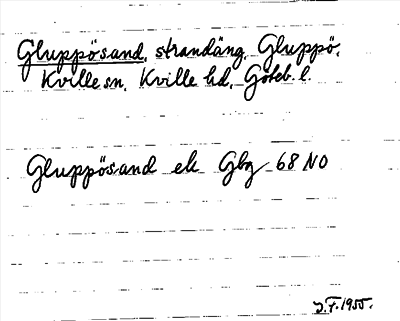 Gluppösand, strandäng, Gluppö,
Kville sn, Kville hd, Göteb. l.
Gluppösand ek Gbg 68 NO
J.F. 1955.